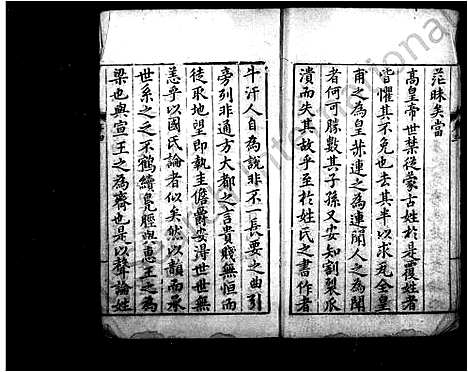 茫昧矣當
高皇帝世禁從蒙古姓於是覆姓者
皆懼其不免也去其半以求免全皇
甫之為皇赫連之為連閭人之為閭
者何可勝數其子孫又安知割裂瓜
潰而失其故乎至於姓氏之書作者
斗汗人自為說非不一長要之曲引
旁列非通方大都之言貴賤無恒而
徒取地望即執圭儋爵安得世世無
恙乎以國氏論者似矣然以韻而承
世系之乏不鶴續鳧脛與惠王之為
梁也與宣王之為齊也是以聲論姓